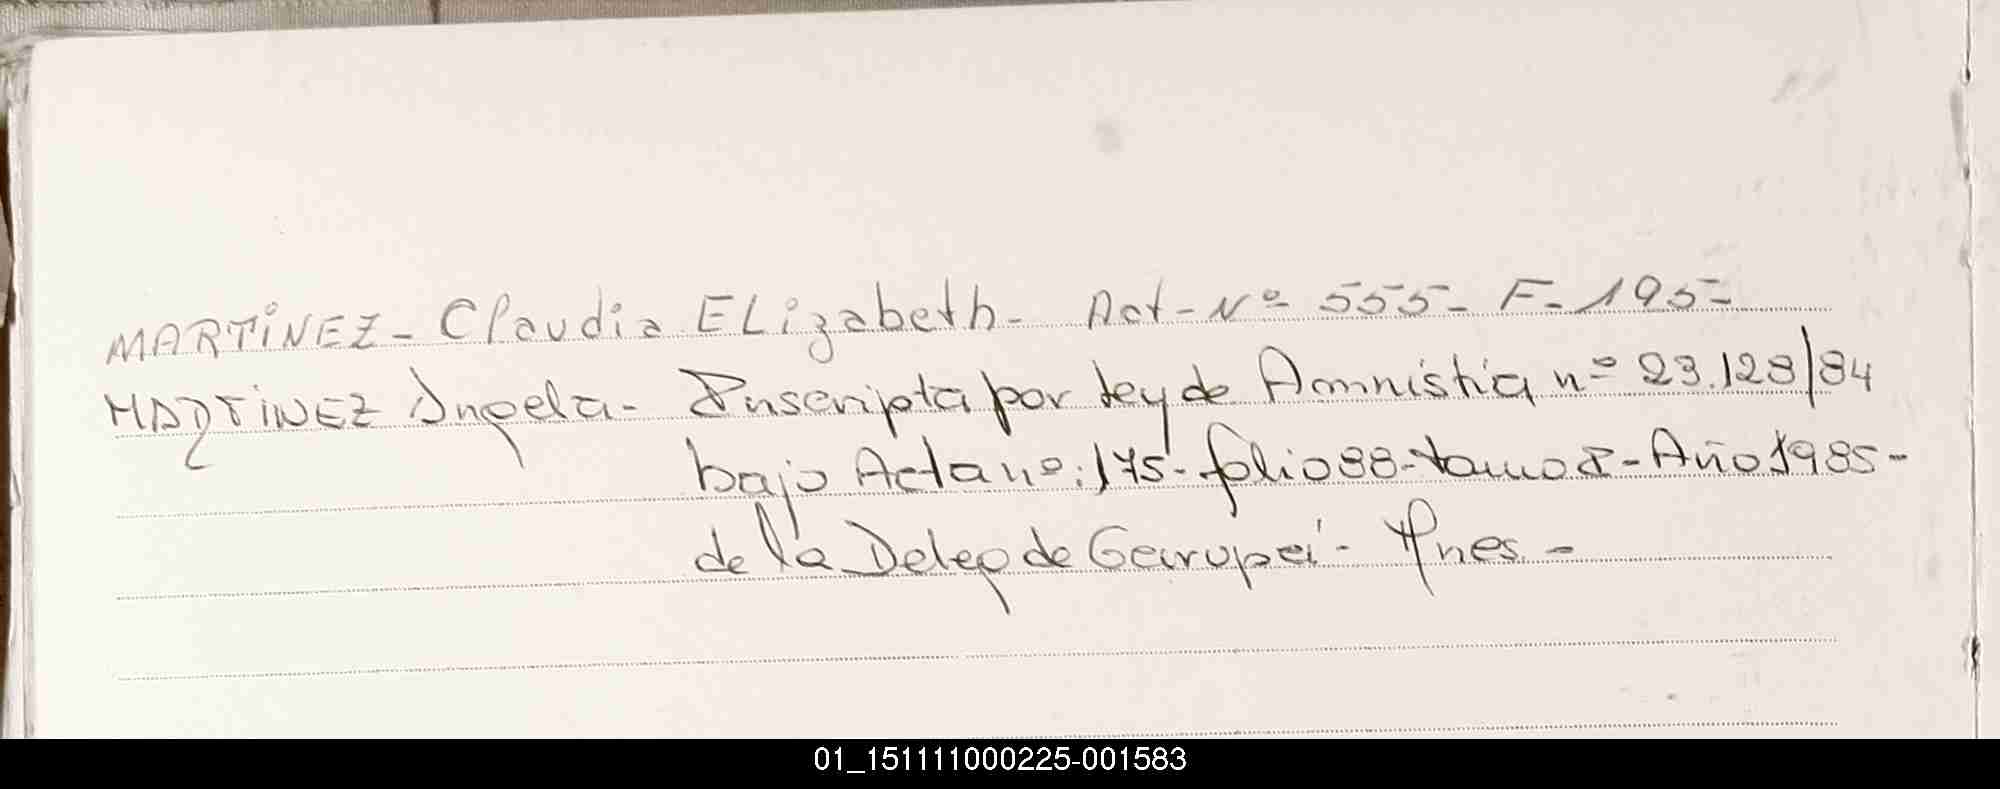 MARTINEZ - Claudia ELizabeth - Act - Nº 555 - F - 195 -
MARTINEZ Angela - Inscripta por Ley de Amnistía nº 23.128/84
bajo Acta nº: 175 - folio 88 - tomo I - Año 1985 -
de la Deleg de Garupá - Mnes. -
01_151111000225-001583